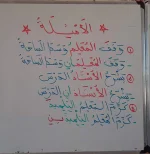 الأمثلة
① وقف المعلم وسط الساحة
- وقف المعلمان وسط الساحة
② يشرح الأستاذ الدرس
- يشرح الأستاذان الدرس
③ كرّم المعلم التلميذ
- كرّم المعلم التلميذين